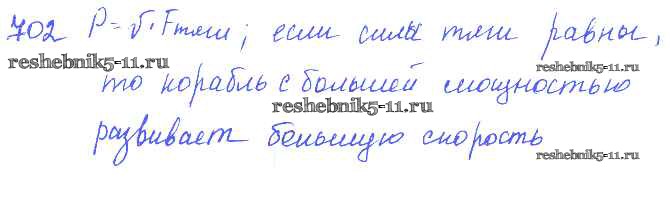 702 P = υ·Fтяги; если силы тяги равны,
reshebnik5-11.ru
reshebnik5-11.ru
то корабль с большей мощностью
reshebnik5-11.ru
развивает большую скорость
reshebnik5-11.ru